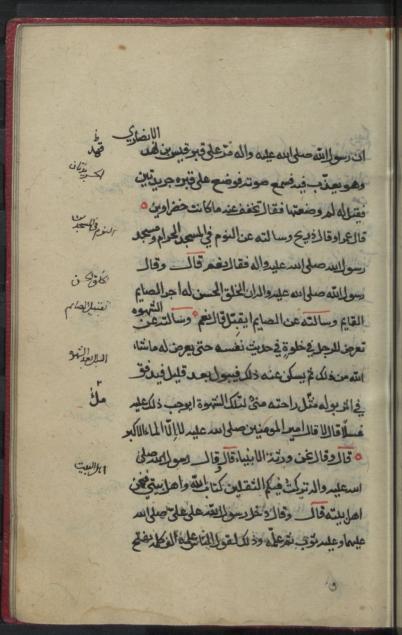 الانصاري
ان رسول الله صلى الله عليه واله مر على قبر قيس بن فهد
وهو يعذب فيه فسمع صوته فوضع على قبره جريدتين
فقيل له لم وضعتها فقال يخفف عنه ما كانت خضراوين
قال وسالته عن النوم في المسجد الحرام ومسجد
رسول الله صلى الله عليه واله فقال نعم قال وقال
رسول الله صلى الله عليه واله ان الخلق الحسن له اجر الصايم
القايم وسالته عن الصايم ايقبل قال نعم وسالته عن الشهوة
تعرض للرجل في خلوة في حديث نفسه حتى يعرض له ما شاء
الله من ذلك ثم يسكن عنه ذلك فيبول بعد قليل فيدفق
في اخر بوله مثل راحته مني لتلك الشهوة ايوجب ذلك عليه
غسلا قال لا قال امير المؤمنين صلى الله عليه لا الا الماء الاكبر
قال وقال نحن ورثة الانبياء قال وقال رسول الله صلى
الله عليه واله تركت فيكم الثقلين كتاب الله واهل بيتي فنحن
اهل بيته قال وقال دخل رسول الله على علي صلى الله
عليهما وعليه ثوب
قهد
النوم في المسجد
اهل البيت